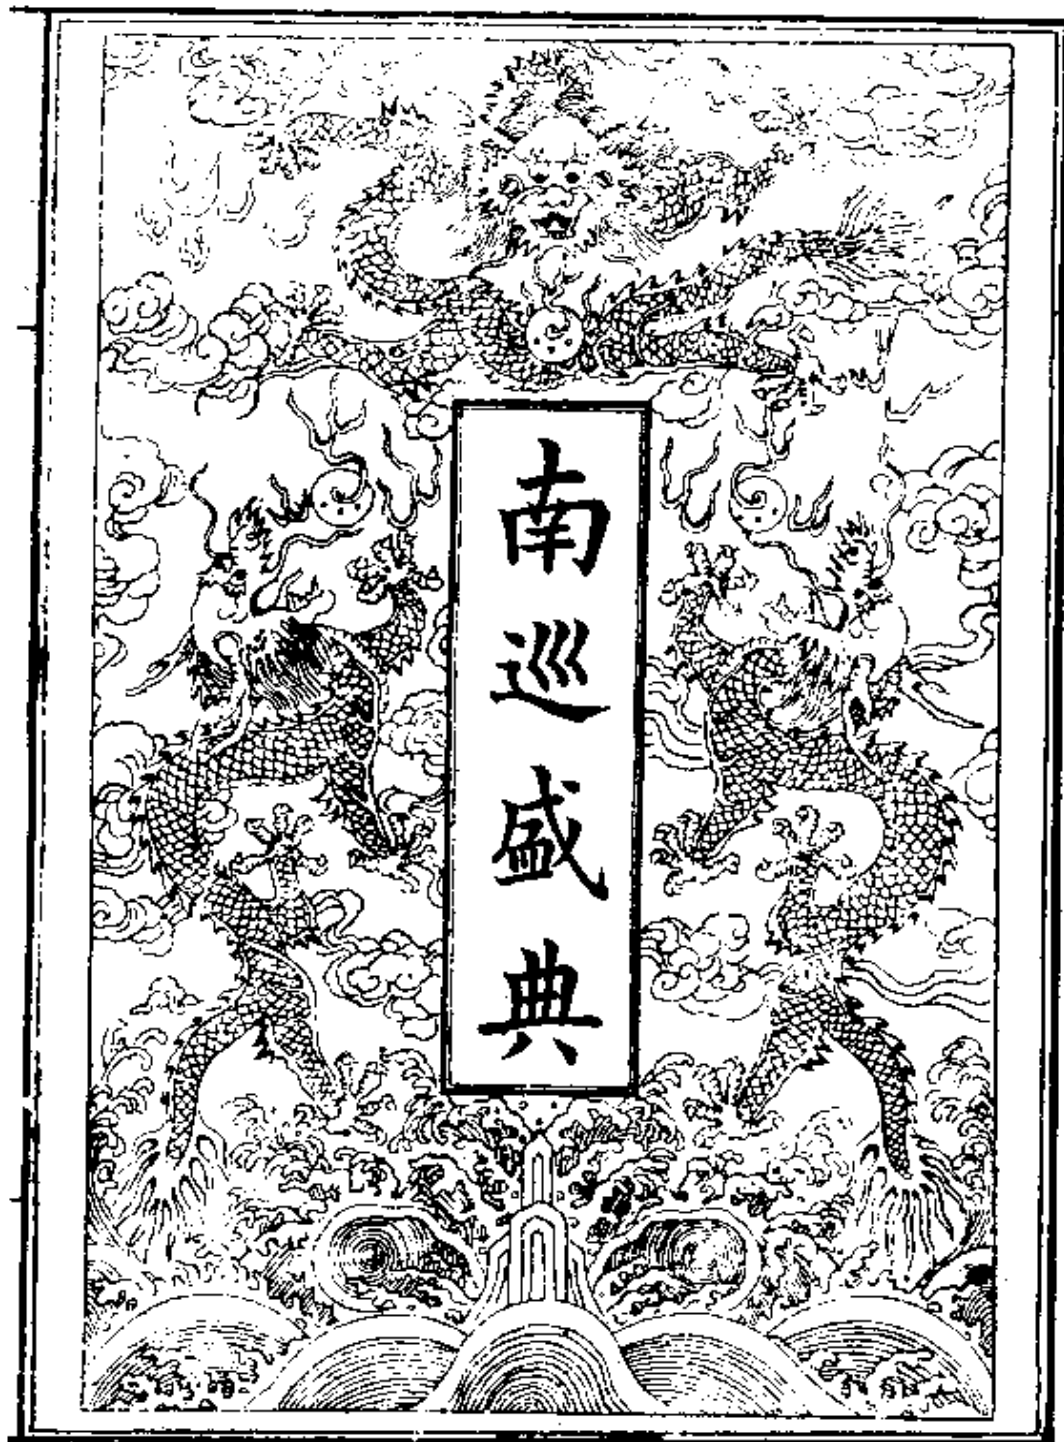 南巡盛典